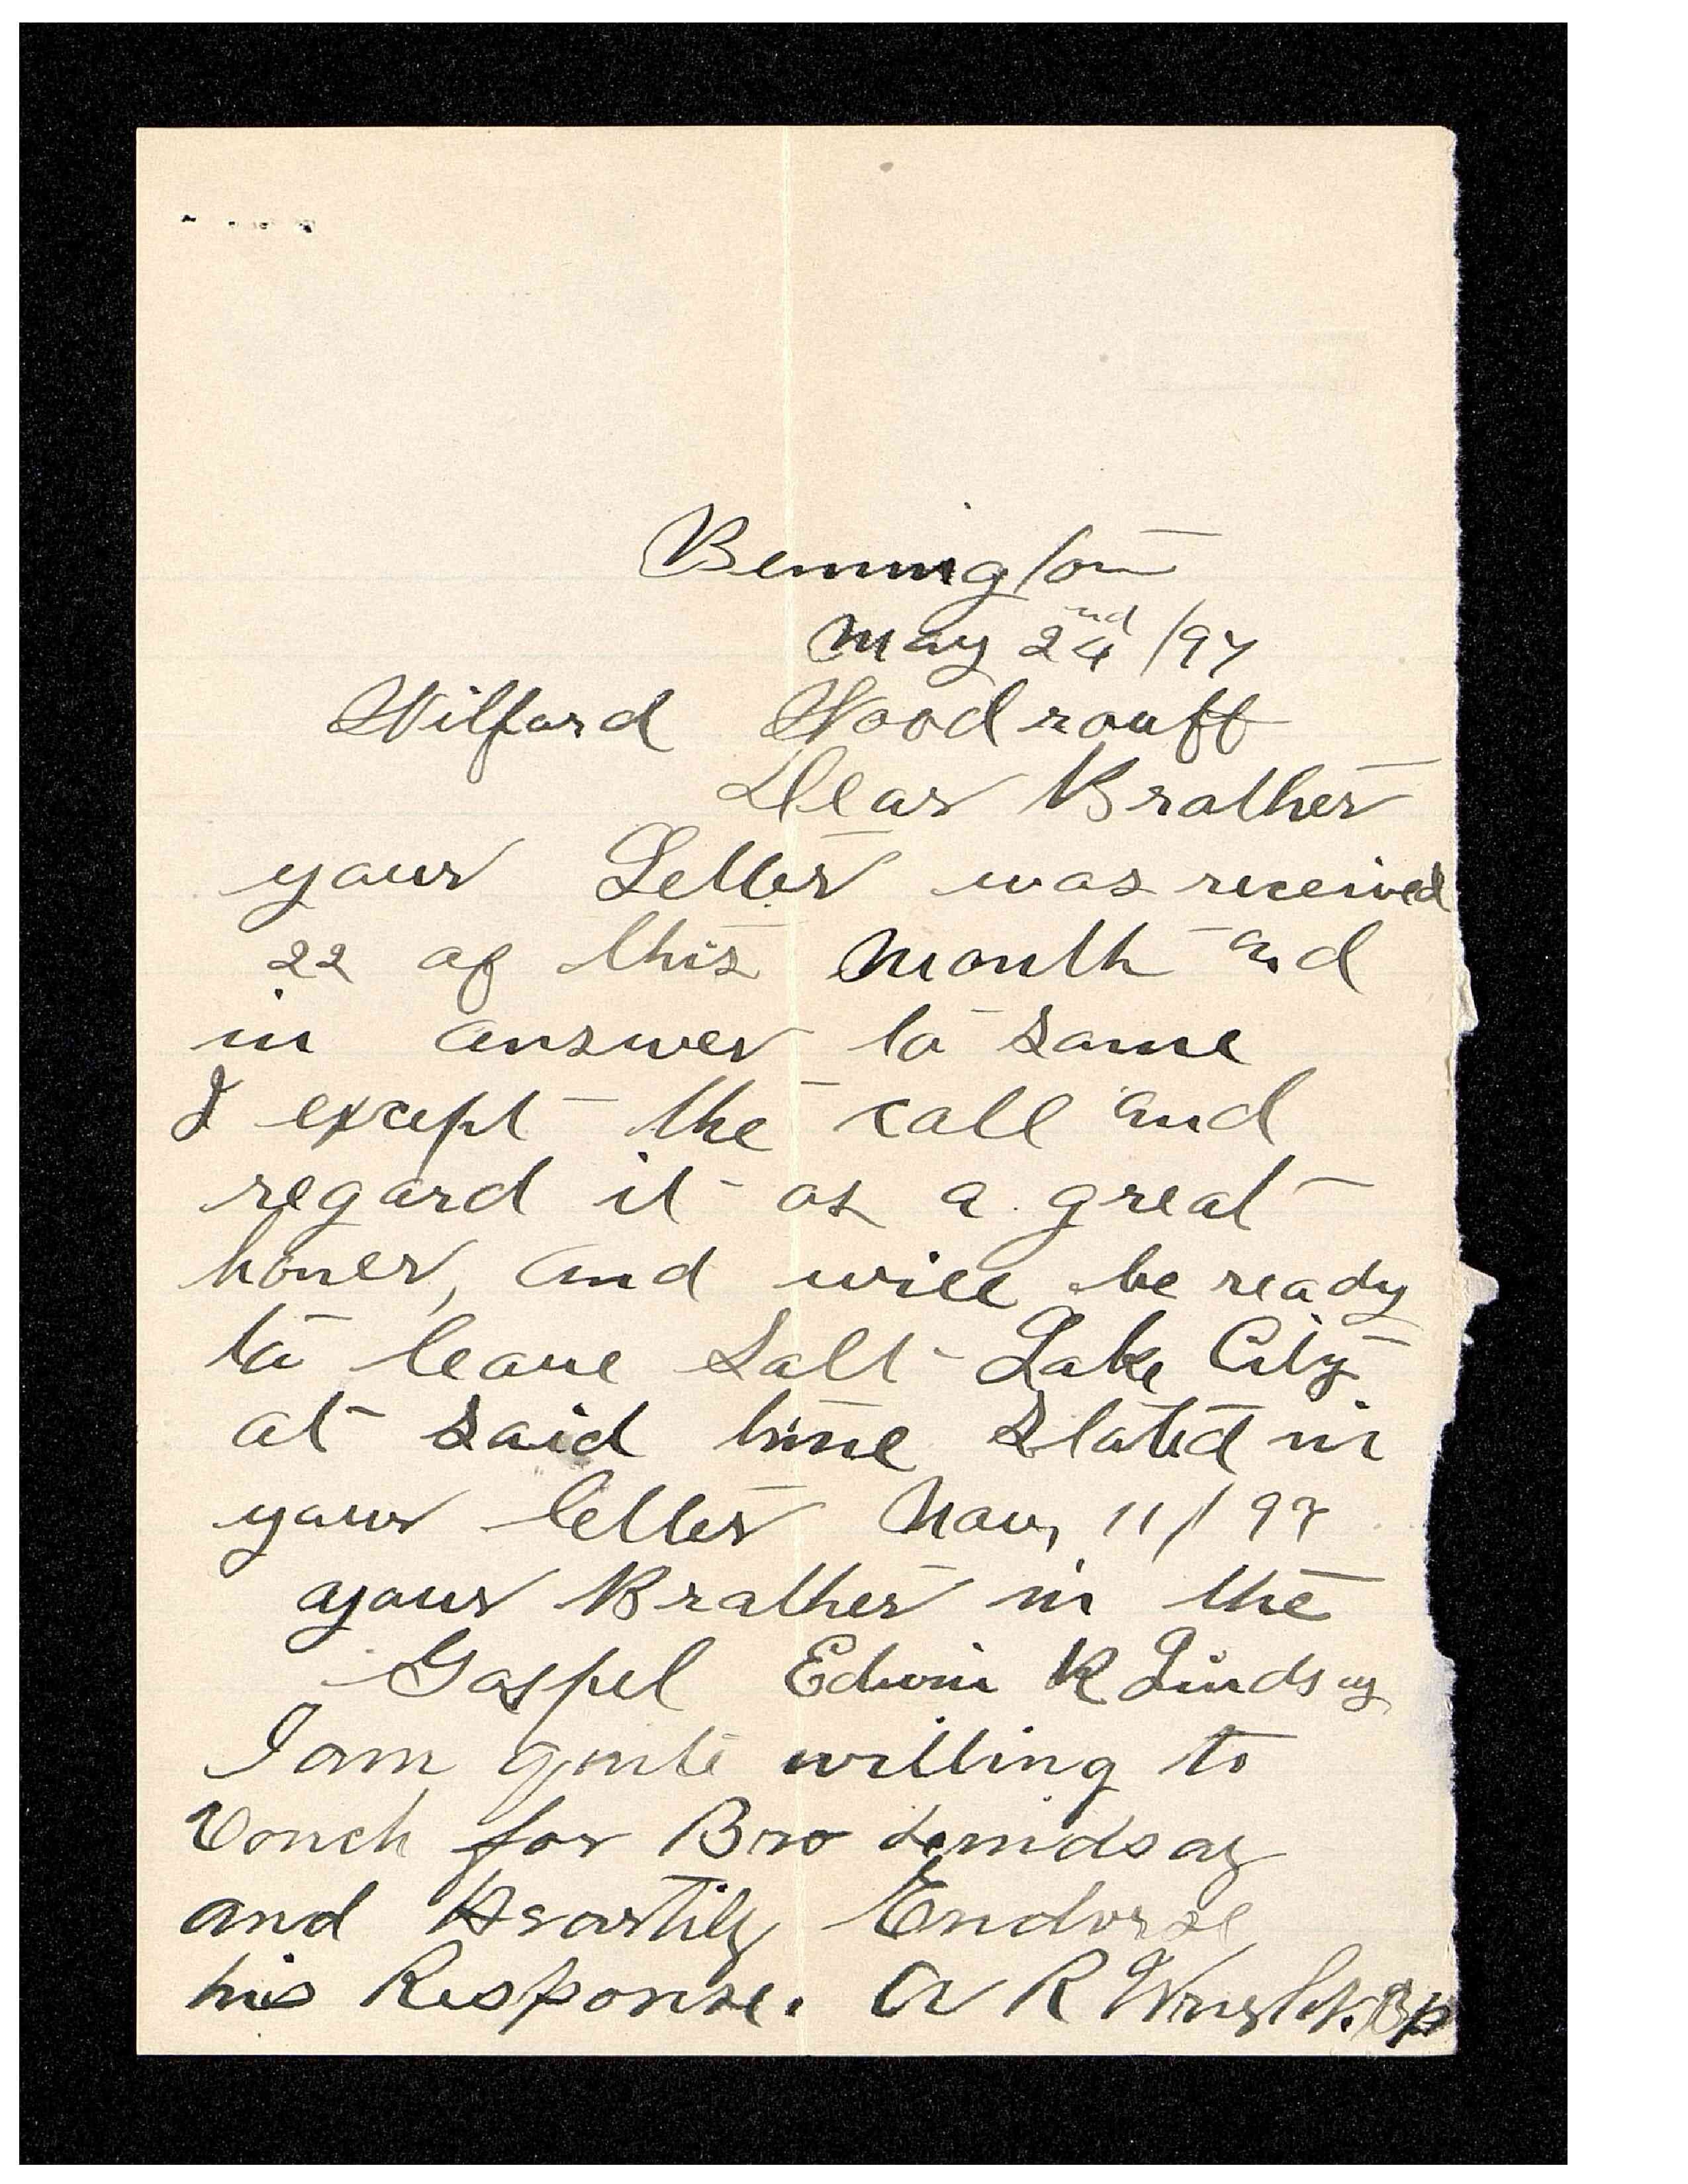 Bennington
May 24nd /97
Wilford Woodrouff
Dear Brother
your Letter was received
22 of this Month and
in answer to same
I except the call and
regard it as a great
honer, and will be ready
to leave Salt Lake City
at said time stated in
your letter Nov, 11/97
your Brother in the
Gospel Edwin R Lindsay
I am quite willing to
Vouch for Bro Lindsay
and Heartily Endorse
his Response. A R Wright. Bp